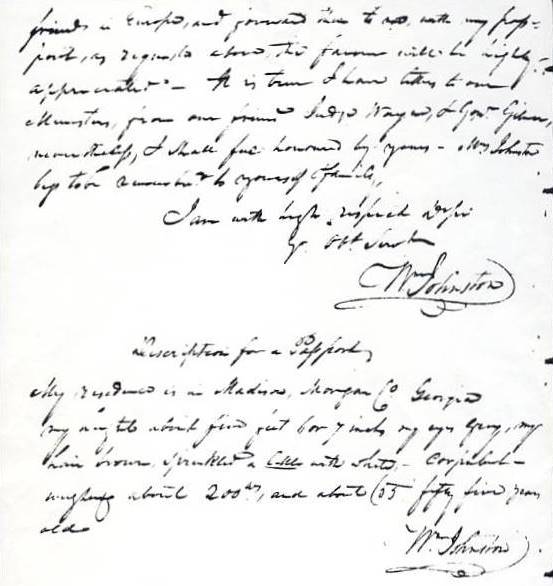 friends in Europe, and forward them to me, with my pass-
port, as requested above, the favour will be highly
appreciated – It is true I have letters to our
Ministers, from our friend Judge Wayne, & Govr. Gilmer,
nevertheless, I shall feel honoured by yours – Mrs Johnston
begs to be remembered to yourself & family,
I am with high respect Dr Sir
Yr. Obt. Servt
Wm Johnston
Description for a Passport,
My residence is in Madison, Morgan Co. Georgia
my height about five feet 6 or 7 inches, my eyes Grey, my
hair brown, sprinkled a little with white, – Corpulent –
weighing about 200 lbs, and about (55 fifty five years
old
Wm Johnston